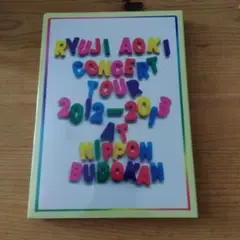 RYUJI AOKI
CONCERT
TOUR
2012-2013
AT
NIPPON
BUDOKAN